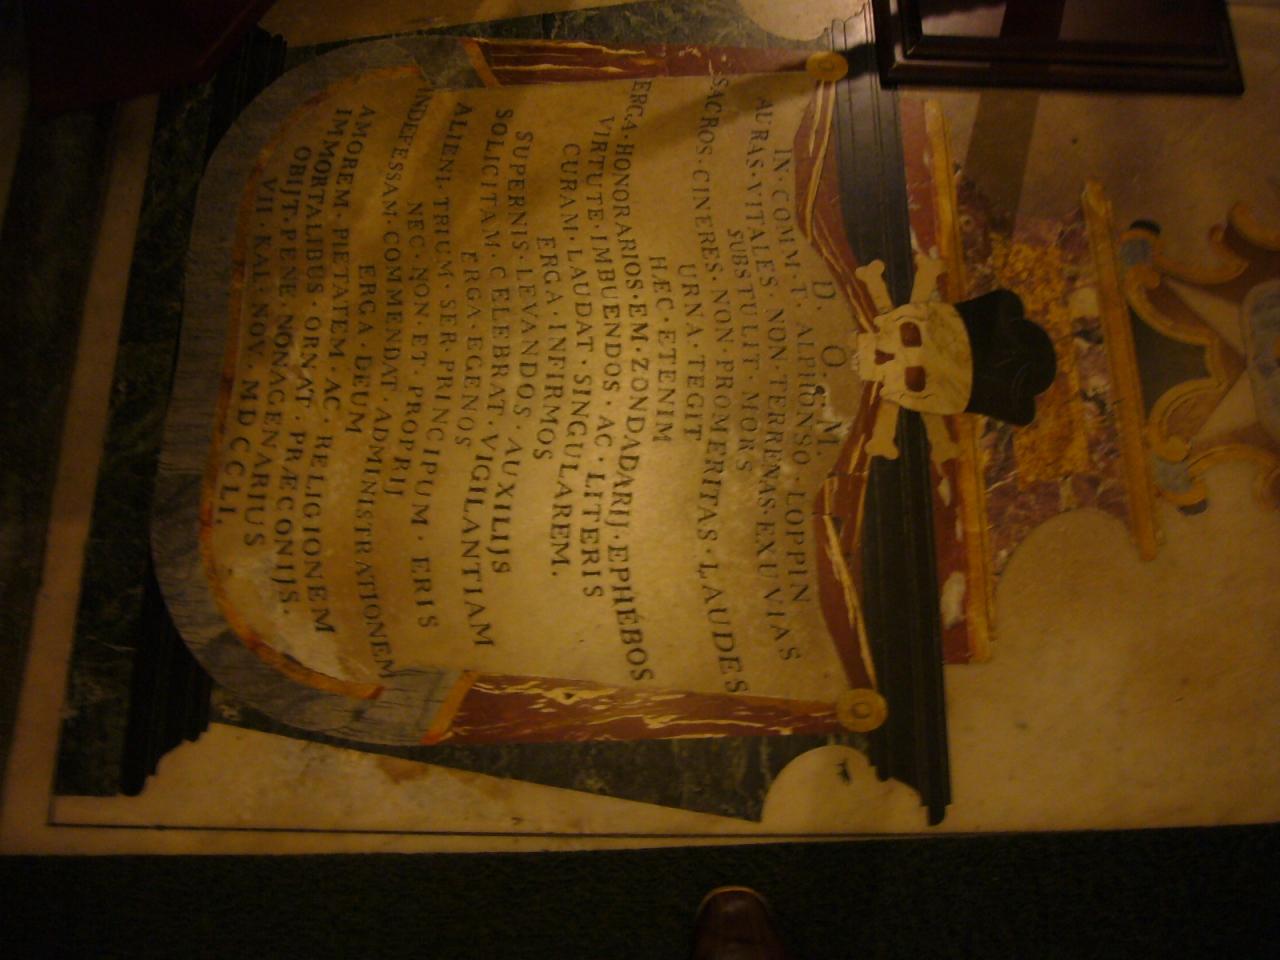 D. O. M.
IN·COMM·T·ALPHONSO·LOPPIN
AURAS·VITALES·NON·TERRENAS·EXUVIAS
SUBSTULIT·MORS
SACROS·CINERES·NON·PROMERITAS·LAUDES
URNA·TEGIT
HÆC·ETENIM
ERGA·HONORARIOS·EM·ZONDADARIJ·EPHEBOS
VIRTUTE·IMBUENDOS·AC·LITERIS
CURAM·LAUDAT·SINGULAREM.
ERGA·INFIRMOS
SUPERNIS·LEVANDOS·AUXILIJS
SOLICITAM·CELEBRAT·VIGILANTIAM
ERGA·EGENOS
ALIENI·TRIUM·SER·PRINCIPUM·ERIS
NEC·NON·ET·PROPRIJ
INDEFESSAM·COMMENDAT·ADMINISTRATIONEM
ERGA·DEUM
AMOREM·PIETATEM·AC·RELIGIONEM
IMMORTALIBUS·ORNAT·PRÆCONIJS·
OBIJT·PENE·NONAGENARIUS
VII·KAL·NOV·MDCCLI.